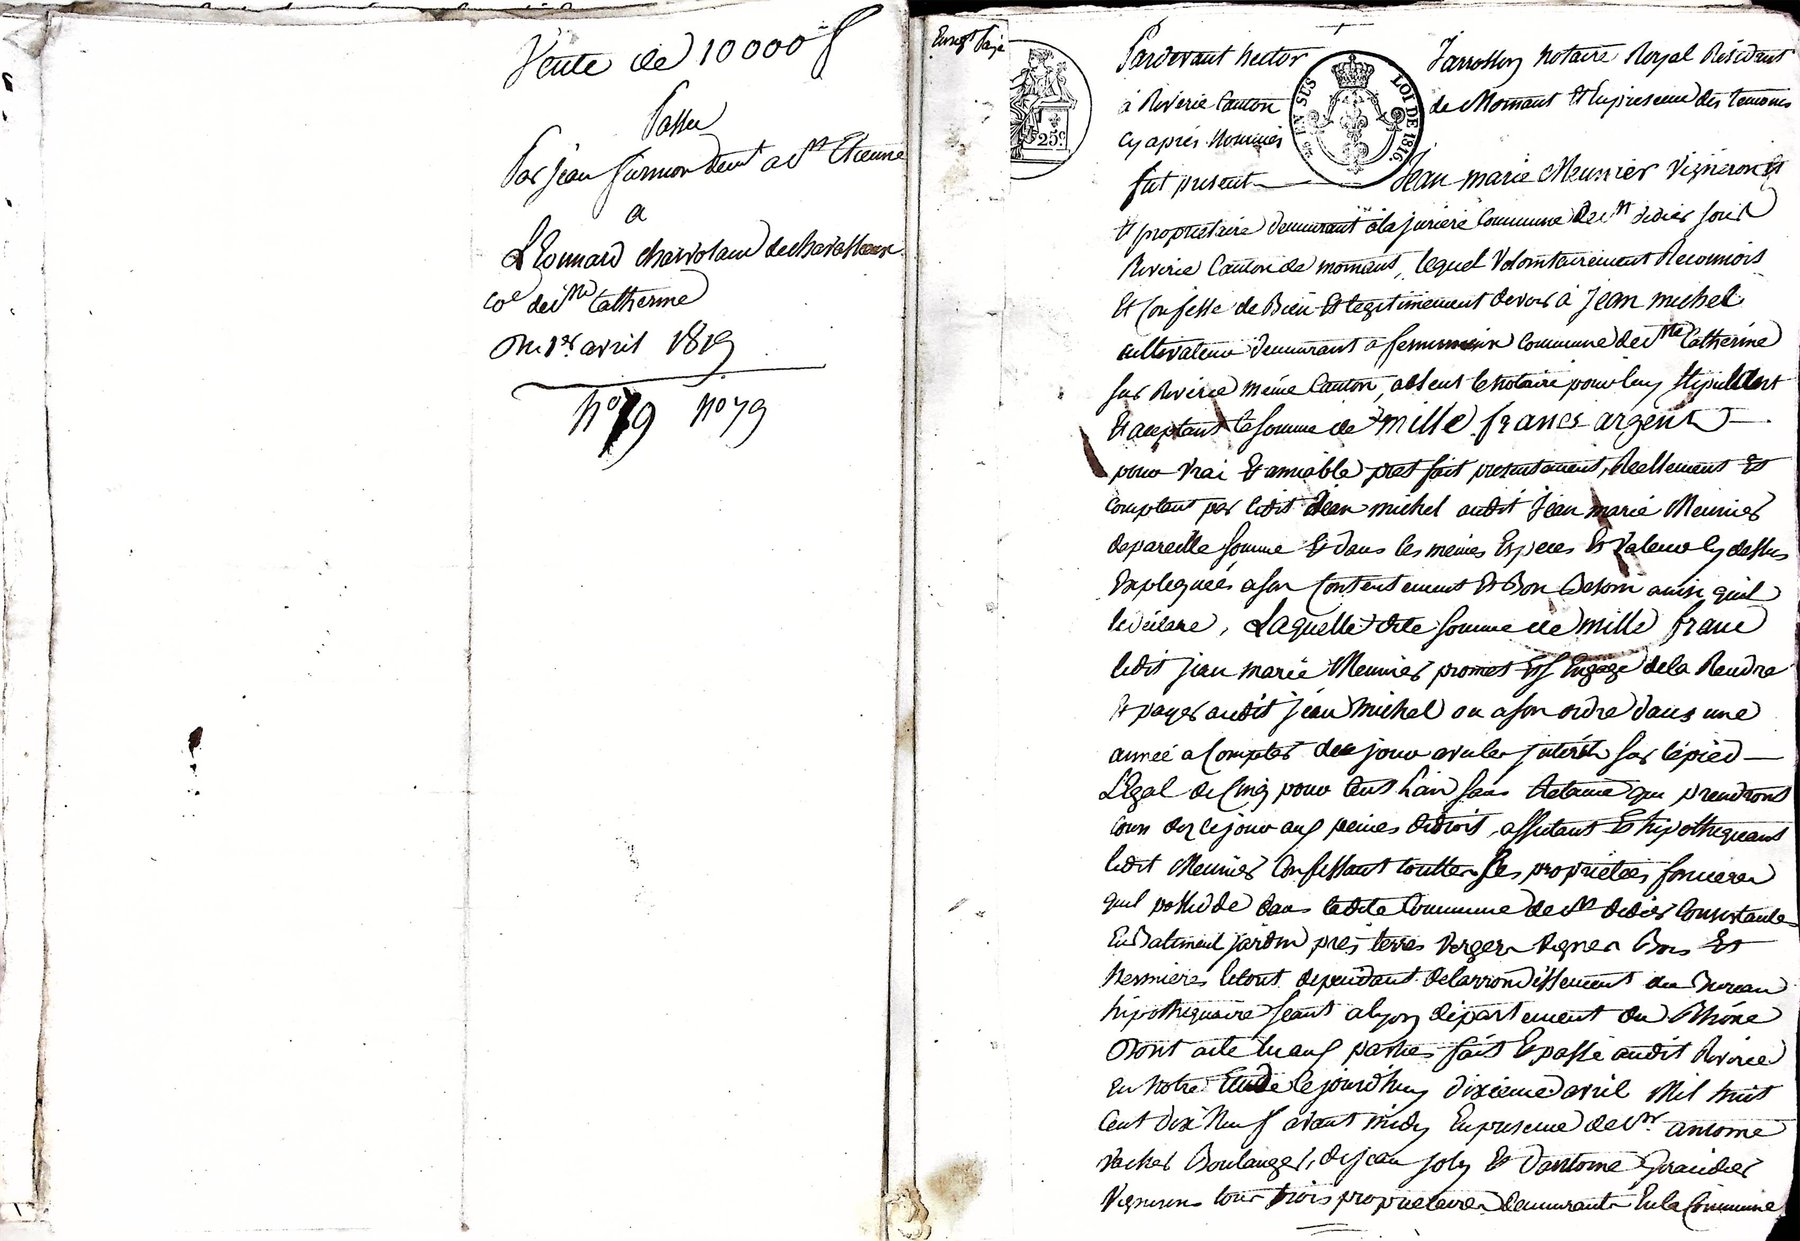 Vente de 10000 f
Passée
Par jean furmion demt a St Etienne
a
Léonnard charvolain de chavasseaux
coe de Ste Catherine
Du 1er avril 1819
no 79 no 79
Enregt Payé
25c.
EN SUS
LOI DE 1816.
Pardevant hector Jarrosson notaire Royal Résidant
à Riverie Canton de Mornant Et En presence des temoins
Cy après Nommés
fut present Jean marie Meunier Vigneron Et
Et proprietaire demeurant à la jurierie Commune de St didier sous
Riverie Canton de mornant, lequel Volontairement Reconnois
Et Confesse de Bien Et legitimement devoir à Jean michel
cultivateur demeurant à Commune de Ste Catherine
sur Riverie même Canton, absent le notaire pour luy stipullant
Et aceptant la somme de mille francs argent
pour vrai Et amiable pret fait presentement, Reellement Et
comptant par ledit Jean michel audit Jean marie Meunier
de pareille somme Et dans les memes Especes Et Valeur Cy dessus
Expliquées, a son Contentement Et Bon Besoin ainsi quil
le déclare, Laquelle dite somme de mille franc
ledit jean marie Meunier promet Et s'Engage de la Rendre
Et payer audit jean Michel ou a son ordre dans une
année a Compter de ce jour avec les jnterêts sur le pied
Légal de Cinq pour Cent L'an sans Retenue qui prendront
cours dez ce jour aux peines de droit, affectant Et hipothequant
ledit Meunier Confessant touttes ses propriétées foncieres
quil possede dans ladite Commune de St didier Consistantes
En Batiment jardin prés terres Verger Vignes Bois Et
hermieres le tout dependant de l'arrondissement du Bureau
hipothequaire séant a lyon département du Rhône
Dont acte lu aux parties fait Et passé audit Riverie
En notre Etude Cejourd'huy dixieme avril Mil huit
Cent dix Neuf avant midy En presence de Sr antoine
Vacher Boulanger, de jean joly Et d'antoine Giraudier
Vignerons tous trois proprietaires demeurants En la Commune